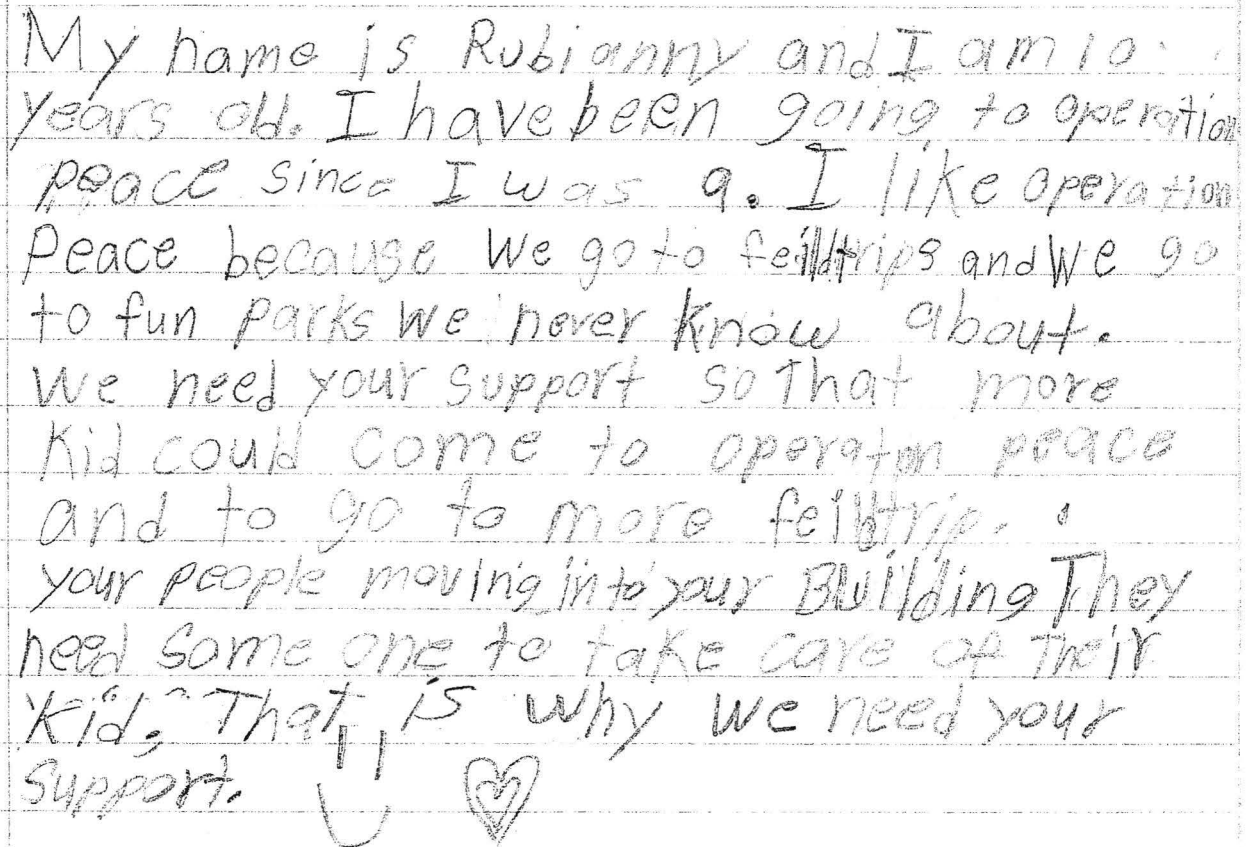 My name is Rubianny and I am 10
years old. I have been going to operation
peace since I was 9. I like operation
Peace because We go to feildtrips and We go
to fun parks We never know about.
We need your support so That more
Kid could come to operaton peace
and to go to more feildtrip.
your people moving into your Building They
need some one to take care of Their
Kid, That is why we need your
support.